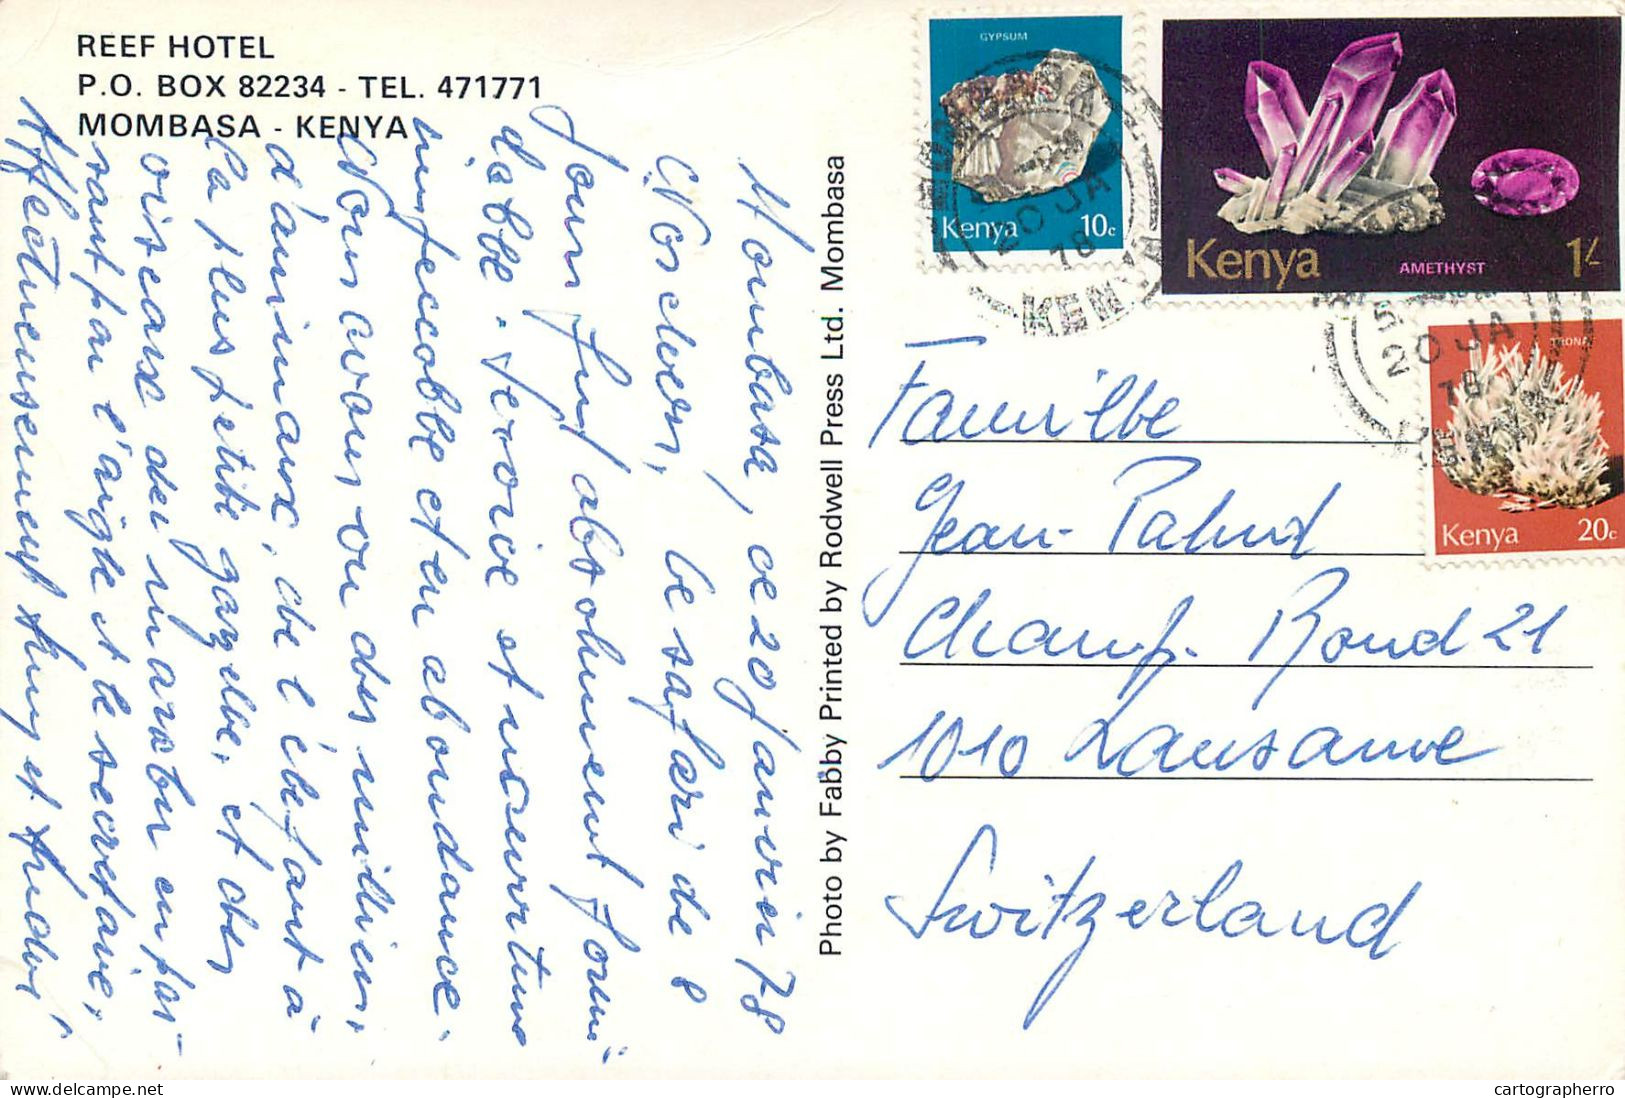 REEF HOTEL
P.O. BOX 82234 - TEL. 471771
MOMBASA - KENYA
Mombasa, ce 20 janvier 78
Nos chers, le safari de 8
jours fut absolument formi-
dable. Service et nourriture
impeccable et en abondance.
Nous avons vu des milliers
d'animaux, de l'éléfant à
la plus petite gazelle, et des
oiseaux du marabu en pas-
sant par l'aigle et le secretaire,
Affectueusement
Photo by Fabby Printed by Rodwell Press Ltd. Mombasa
GYPSUM
Kenya 10c
Kenya AMETHYST 1/-
TRONA
Kenya 20c
20 JA
78
KENYA
20 JA
78
Famille
Jean-Pahud
Champ-Rond 21
1010 Lausanne
Switzerland
delcampe.net
cartographerro